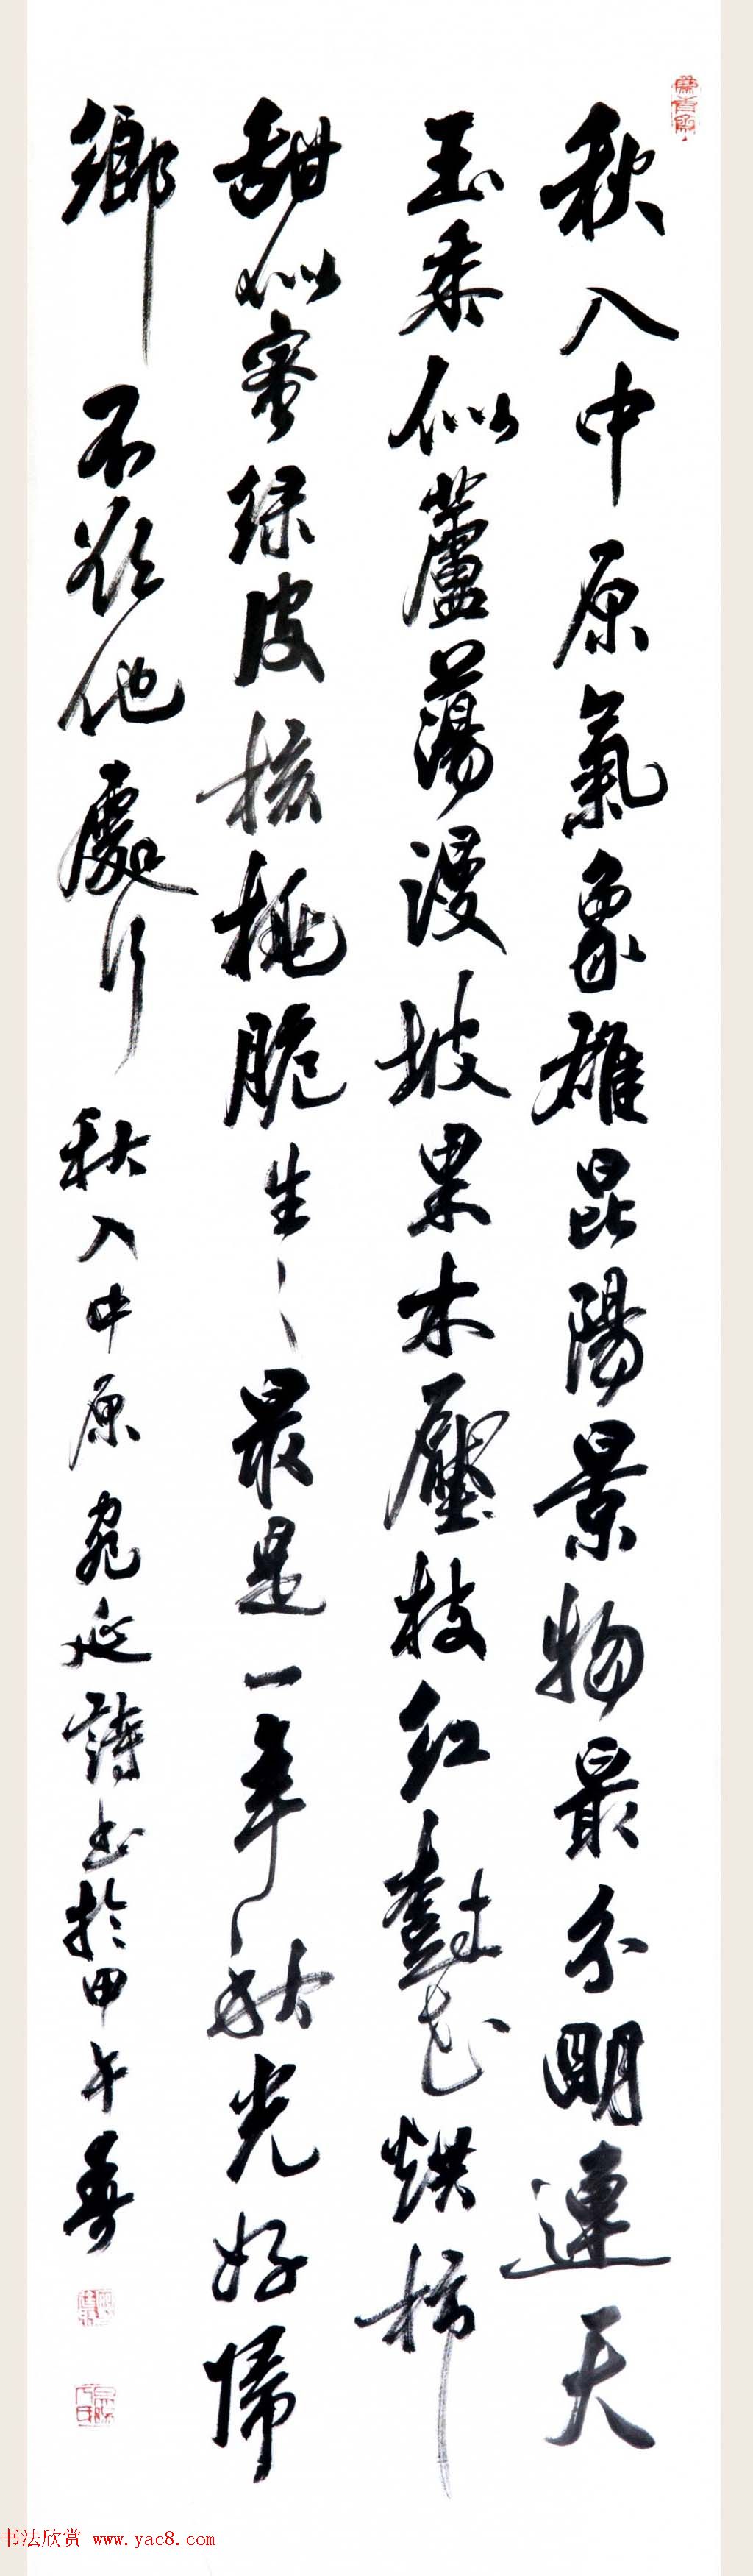 秋入中原氣象雄昆陽景物最分明連天
玉黍似蘆蕩漫坡果木壓枝紅鼓芯烘柿
甜似蜜綠皮核桃脆生々最是一年秋光好歸
鄉不欲他處行
秋入中原宛延詩書於甲午夏
书法欣赏 www.yac8.com